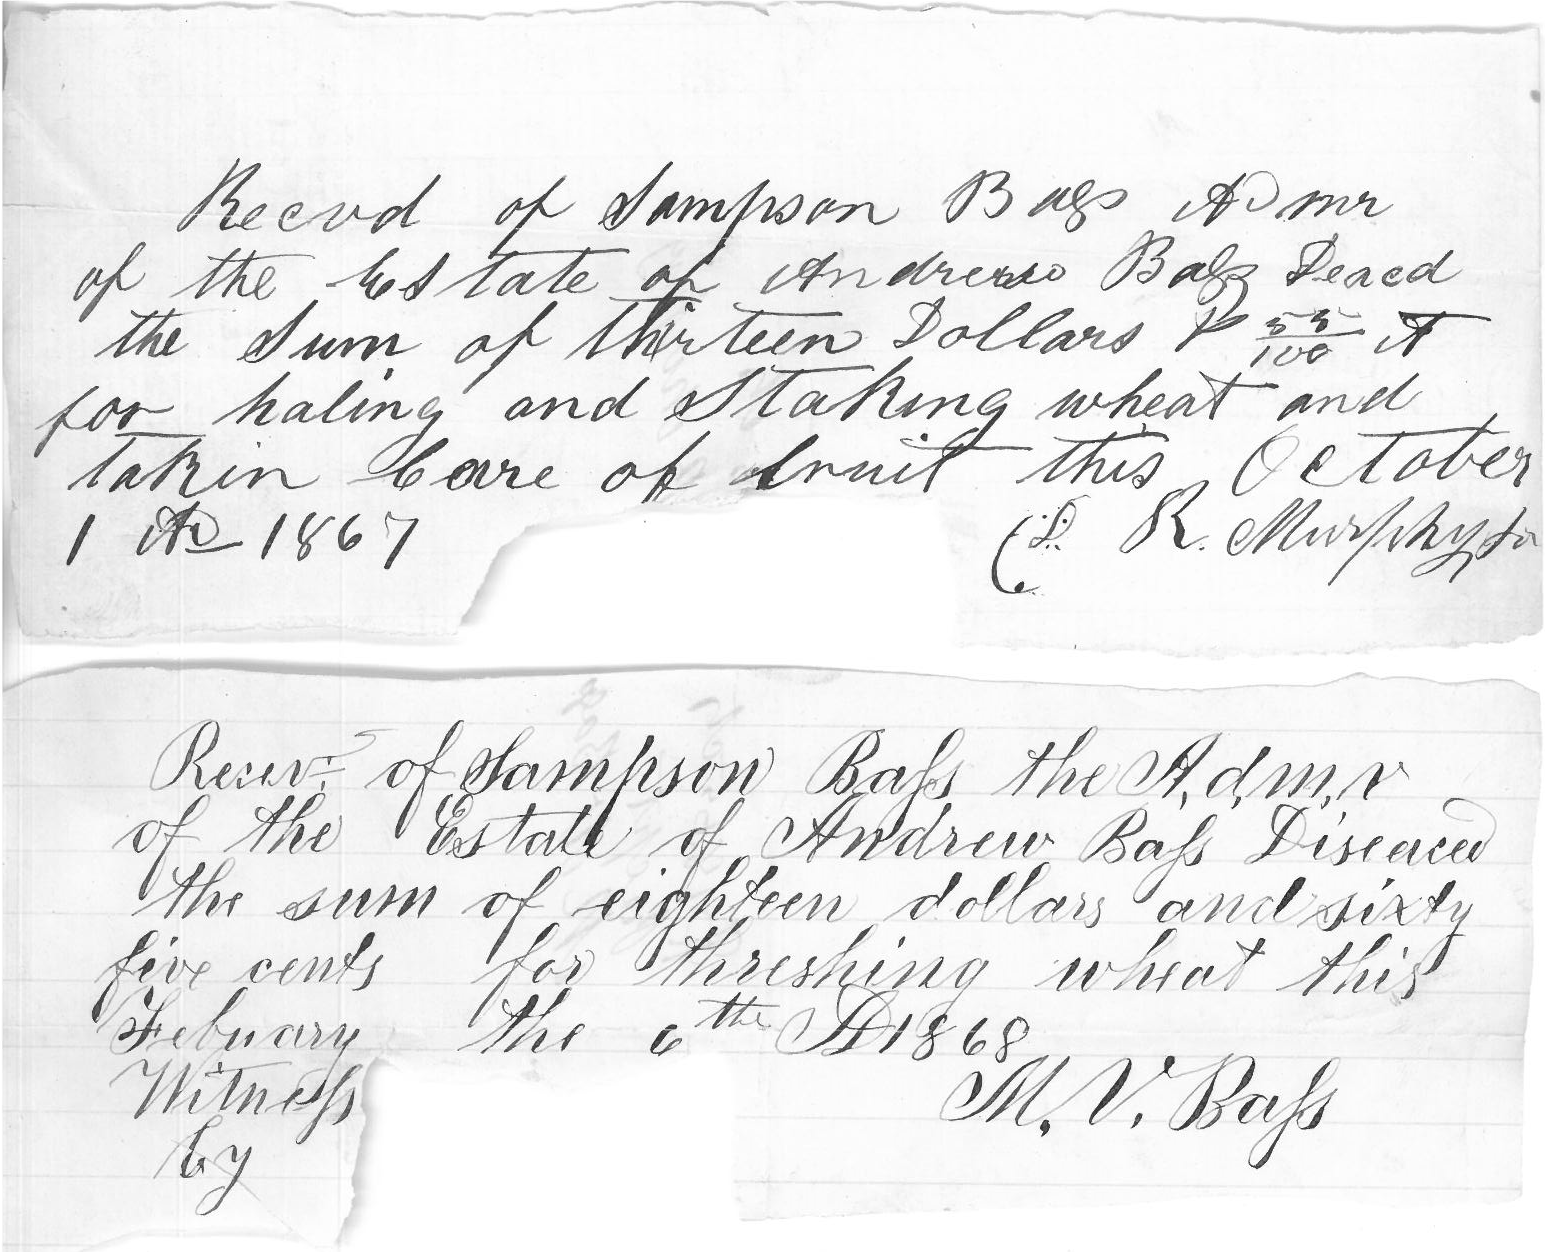 Recvd of Sampson Bass Admr
of the Estate of Andrew Bass Deacd
the Sum of thirteen Dollars & 55/100
for haling and Staking wheat and
takin Care of fruit this October
1 AD 1867 R. Murphy
Recev. of Sampson Bass the A,d,m,r
of the Estate of Andrew Bass Diseaced
the sum of eighteen dollars and sixty
five cents for threshing wheat this
Febuary the 6the AD 1868
Witness M. V. Bass
by